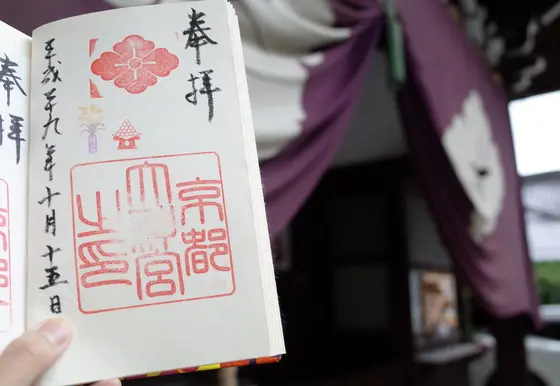 奉拝
京都
大神宮
之印
平成廿九年十月十五日
奉拝